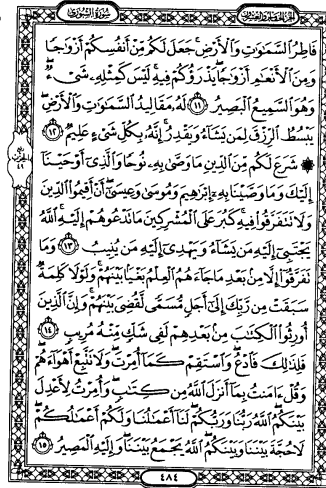 الجزء الخامس والعشرون سورة الشورى
فَاطِرُ السَّمَٰوَٰتِ وَالْأَرْضِ جَعَلَ لَكُم مِّنْ أَنفُسِكُمْ أَزْوَٰجًا
وَمِنَ الْأَنْعَٰمِ أَزْوَٰجًا يَذْرَؤُكُمْ فِيهِ لَيْسَ كَمِثْلِهِ شَىْءٌ
وَهُوَ السَّمِيعُ الْبَصِيرُ ١١ لَهُ مَقَالِيدُ السَّمَٰوَٰتِ وَالْأَرْضِ
يَبْسُطُ الرِّزْقَ لِمَن يَشَآءُ وَيَقْدِرُ إِنَّهُ بِكُلِّ شَىْءٍ عَلِيمٌ ١٢
۞ شَرَعَ لَكُم مِّنَ الدِّينِ مَا وَصَّىٰ بِهِ نُوحًا وَالَّذِى أَوْحَيْنَآ
إِلَيْكَ وَمَا وَصَّيْنَا بِهِ إِبْرَٰهِيمَ وَمُوسَىٰ وَعِيسَىٰ أَنْ أَقِيمُوا الدِّينَ
وَلَا تَتَفَرَّقُوا فِيهِ كَبُرَ عَلَى الْمُشْرِكِينَ مَا تَدْعُوهُمْ إِلَيْهِ اللَّهُ
يَجْتَبِىٓ إِلَيْهِ مَن يَشَآءُ وَيَهْدِىٓ إِلَيْهِ مَن يُنِيبُ ١٣ وَمَا
تَفَرَّقُوٓا إِلَّا مِن بَعْدِ مَا جَآءَهُمُ الْعِلْمُ بَغْيًا بَيْنَهُمْ وَلَوْلَا كَلِمَةٌ
سَبَقَتْ مِن رَّبِّكَ إِلَىٰٓ أَجَلٍ مُّسَمًّى لَّقُضِىَ بَيْنَهُمْ وَإِنَّ الَّذِينَ
أُورِثُوا الْكِتَٰبَ مِن بَعْدِهِمْ لَفِى شَكٍّ مِّنْهُ مُرِيبٍ ١٤
فَلِذَٰلِكَ فَادْعُ وَاسْتَقِمْ كَمَآ أُمِرْتَ وَلَا تَتَّبِعْ أَهْوَآءَهُمْ
وَقُلْ ءَامَنتُ بِمَآ أَنزَلَ اللَّهُ مِن كِتَٰبٍ وَأُمِرْتُ لِأَعْدِلَ
بَيْنَكُمُ اللَّهُ رَبُّنَا وَرَبُّكُمْ لَنَآ أَعْمَٰلُنَا وَلَكُمْ أَعْمَٰلُكُمْ
لَا حُجَّةَ بَيْنَنَا وَبَيْنَكُمُ اللَّهُ يَجْمَعُ بَيْنَنَا وَإِلَيْهِ الْمَصِيرُ ١٥
٤٨٤